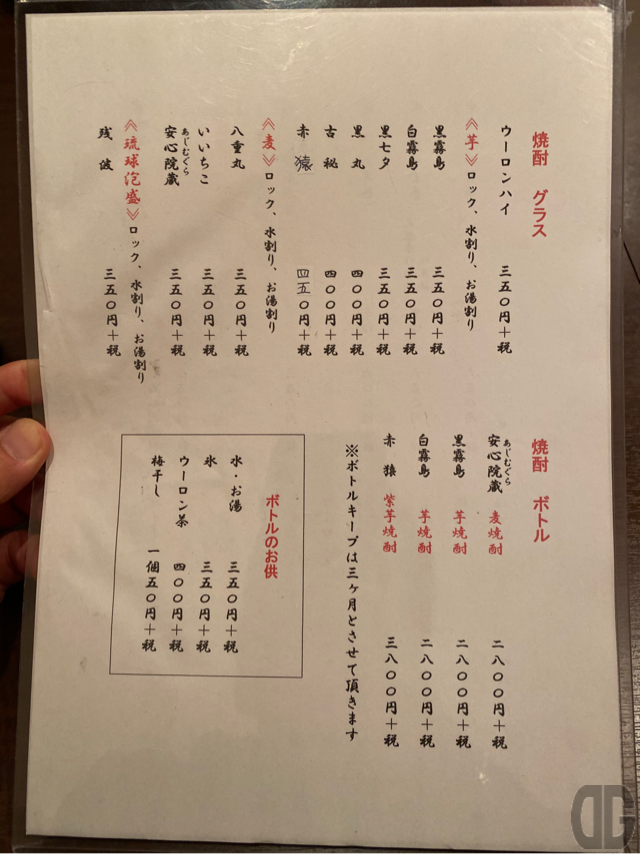 焼酎 グラス
ウーロンハイ 三五〇円+税
≪芋≫ロック、水割り、お湯割り
黒霧島 三五〇円+税
白霧島 三五〇円+税
黒七夕 三五〇円+税
黒丸 四〇〇円+税
古秘 四〇〇円+税
赤猿 四五〇円+税
≪麦≫ロック、水割り、お湯割り
八重丸 三五〇円+税
いいちこ 三五〇円+税
あじむくら
安心院蔵 三五〇円+税
≪琉球泡盛≫ロック、水割り、お湯割り
残波 三五〇円+税
焼酎 ボトル
あじむくら
安心院蔵 麦焼酎 二八〇〇円+税
黒霧島 芋焼酎 二八〇〇円+税
白霧島 芋焼酎 二八〇〇円+税
赤猿 紫芋焼酎 三八〇〇円+税
※ボトルキープは三ヶ月とさせて頂きます
ボトルのお供
水・お湯 三五〇円+税
氷 三五〇円+税
ウーロン茶 四〇〇円+税
梅干し 一個五〇円+税
DG